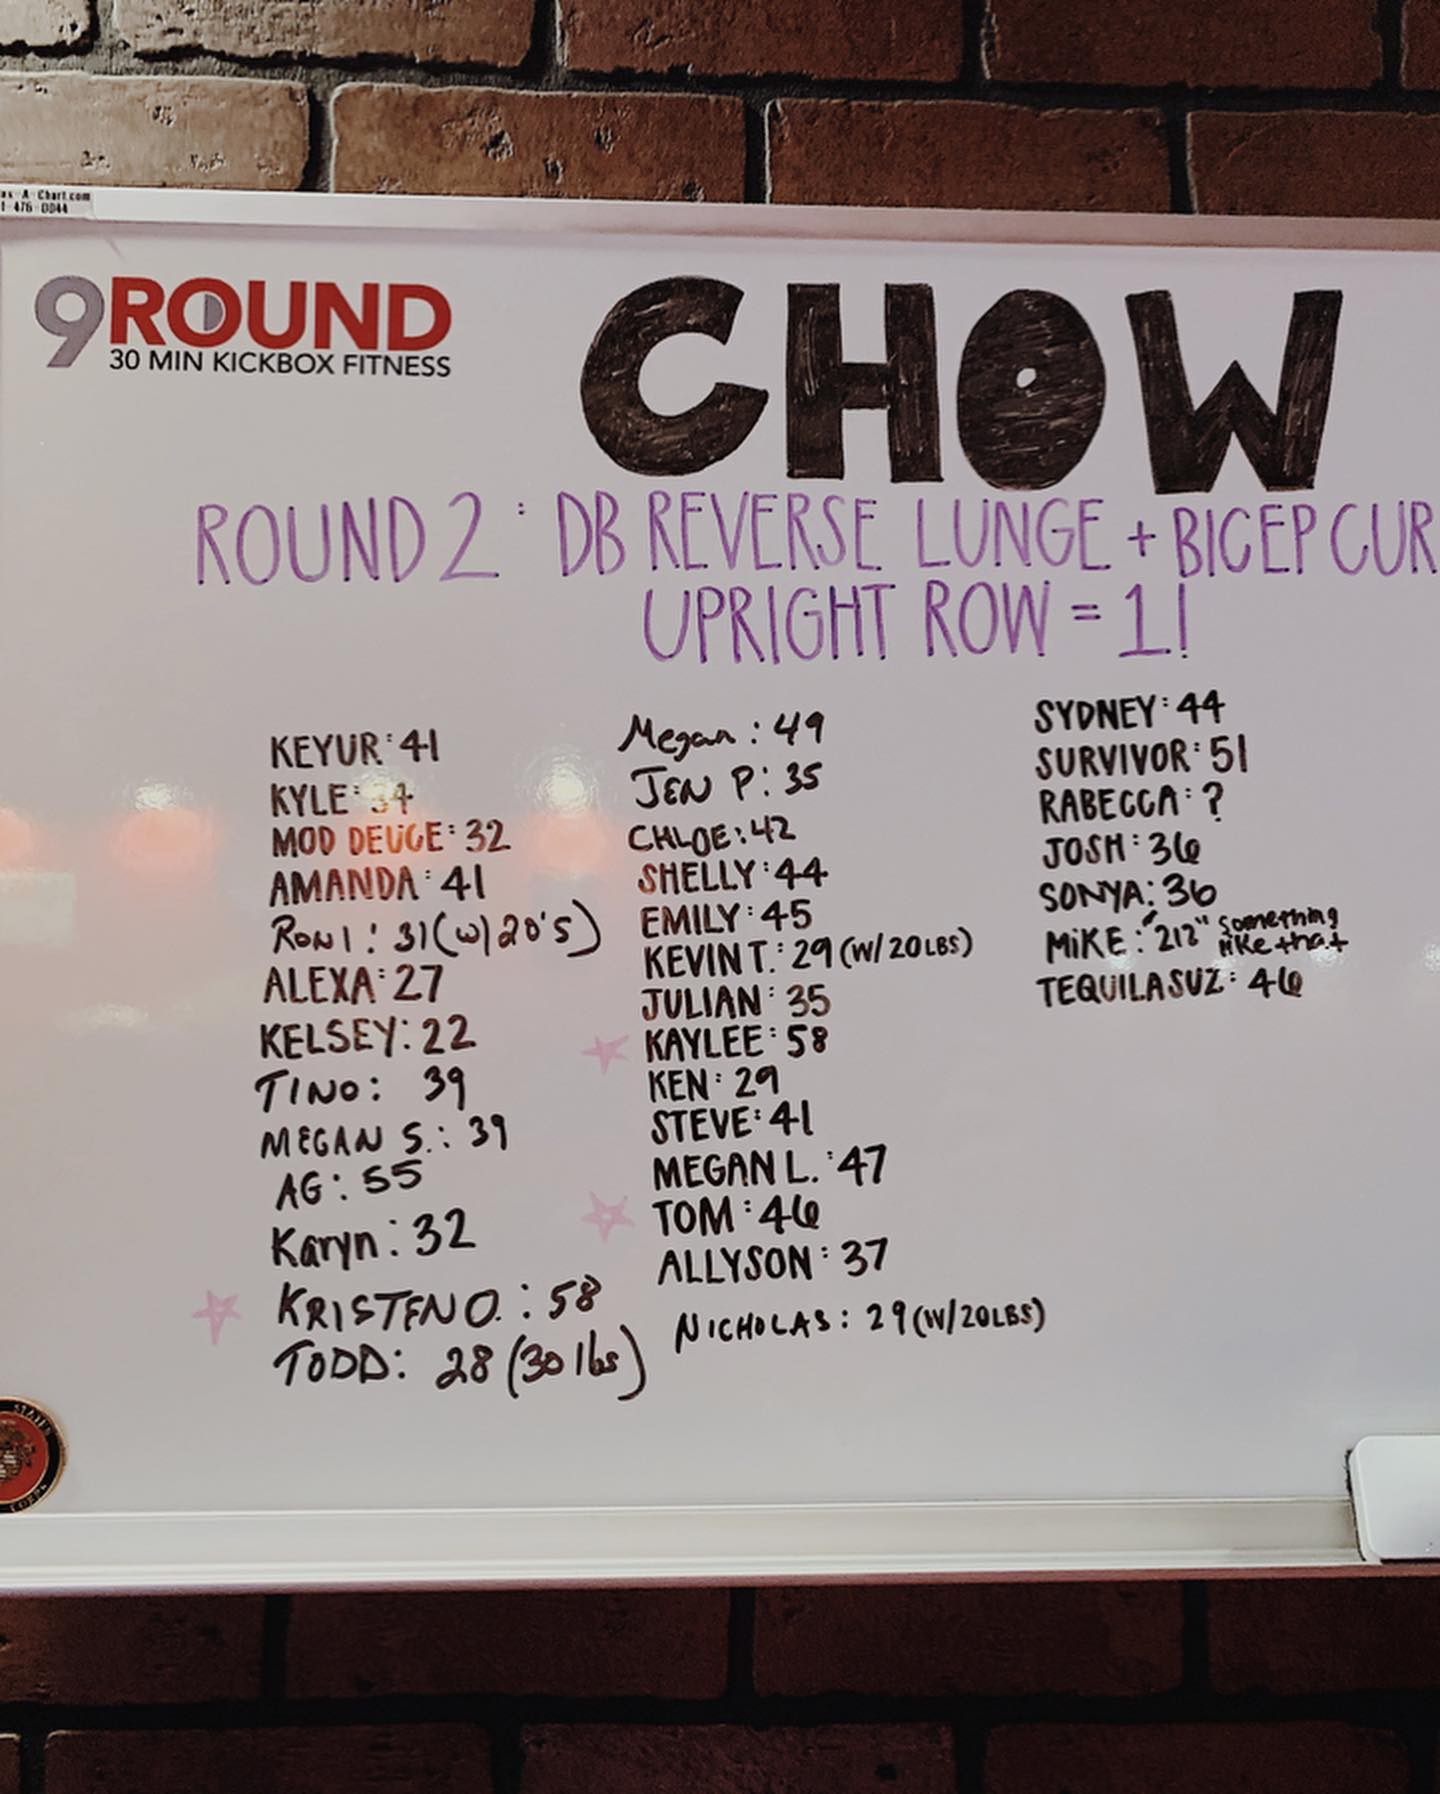 9ROUND
30 MIN KICKBOX FITNESS
CHOW
ROUND 2: DB REVERSE LUNGE + BICEP CUR
UPRIGHT ROW = 1!
KEYUR: 41
KYLE: 34
MOD DEUCE: 32
AMANDA: 41
RONI: 31 (W/20'S)
ALEXA: 27
KELSEY: 22
TINO: 39
MEGAN S.: 39
AG: 55
Karyn: 32
KRISTEN O.: 58
TODD: 28 (30 lbs)
Megan: 49
JEN P: 35
CHLOE: 42
SHELLY: 44
EMILY: 45
KEVIN T.: 29 (W/20LBS)
JULIAN: 35
KAYLEE: 58
KEN: 29
STEVE: 41
MEGAN L.: 47
TOM: 46
ALLYSON: 37
NICHOLAS: 29 (W/20LBS)
SYDNEY: 44
SURVIVOR: 51
RABECCA: ?
JOSH: 36
SONYA: 36
MIKE: "212" Something
like that
TEQUILASUZ: 46
A-Chart.com
STATES
CORPS